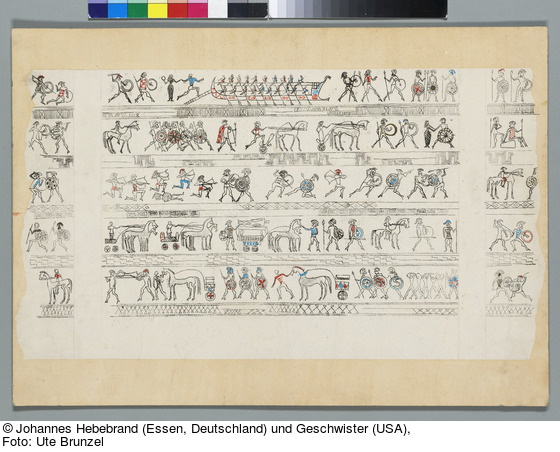 © Johannes Hebebrand (Essen, Deutschland) und Geschwister (USA),
Foto: Ute Brunzel